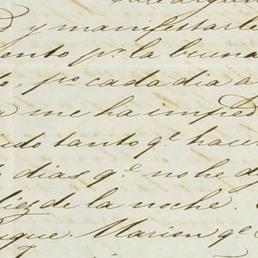 y manifestarle
pr. la buena
po cada dia a
me ha imped
ido tanto qe. hacer
s dias qe. no he d
diez de la noche
que Marion qe.